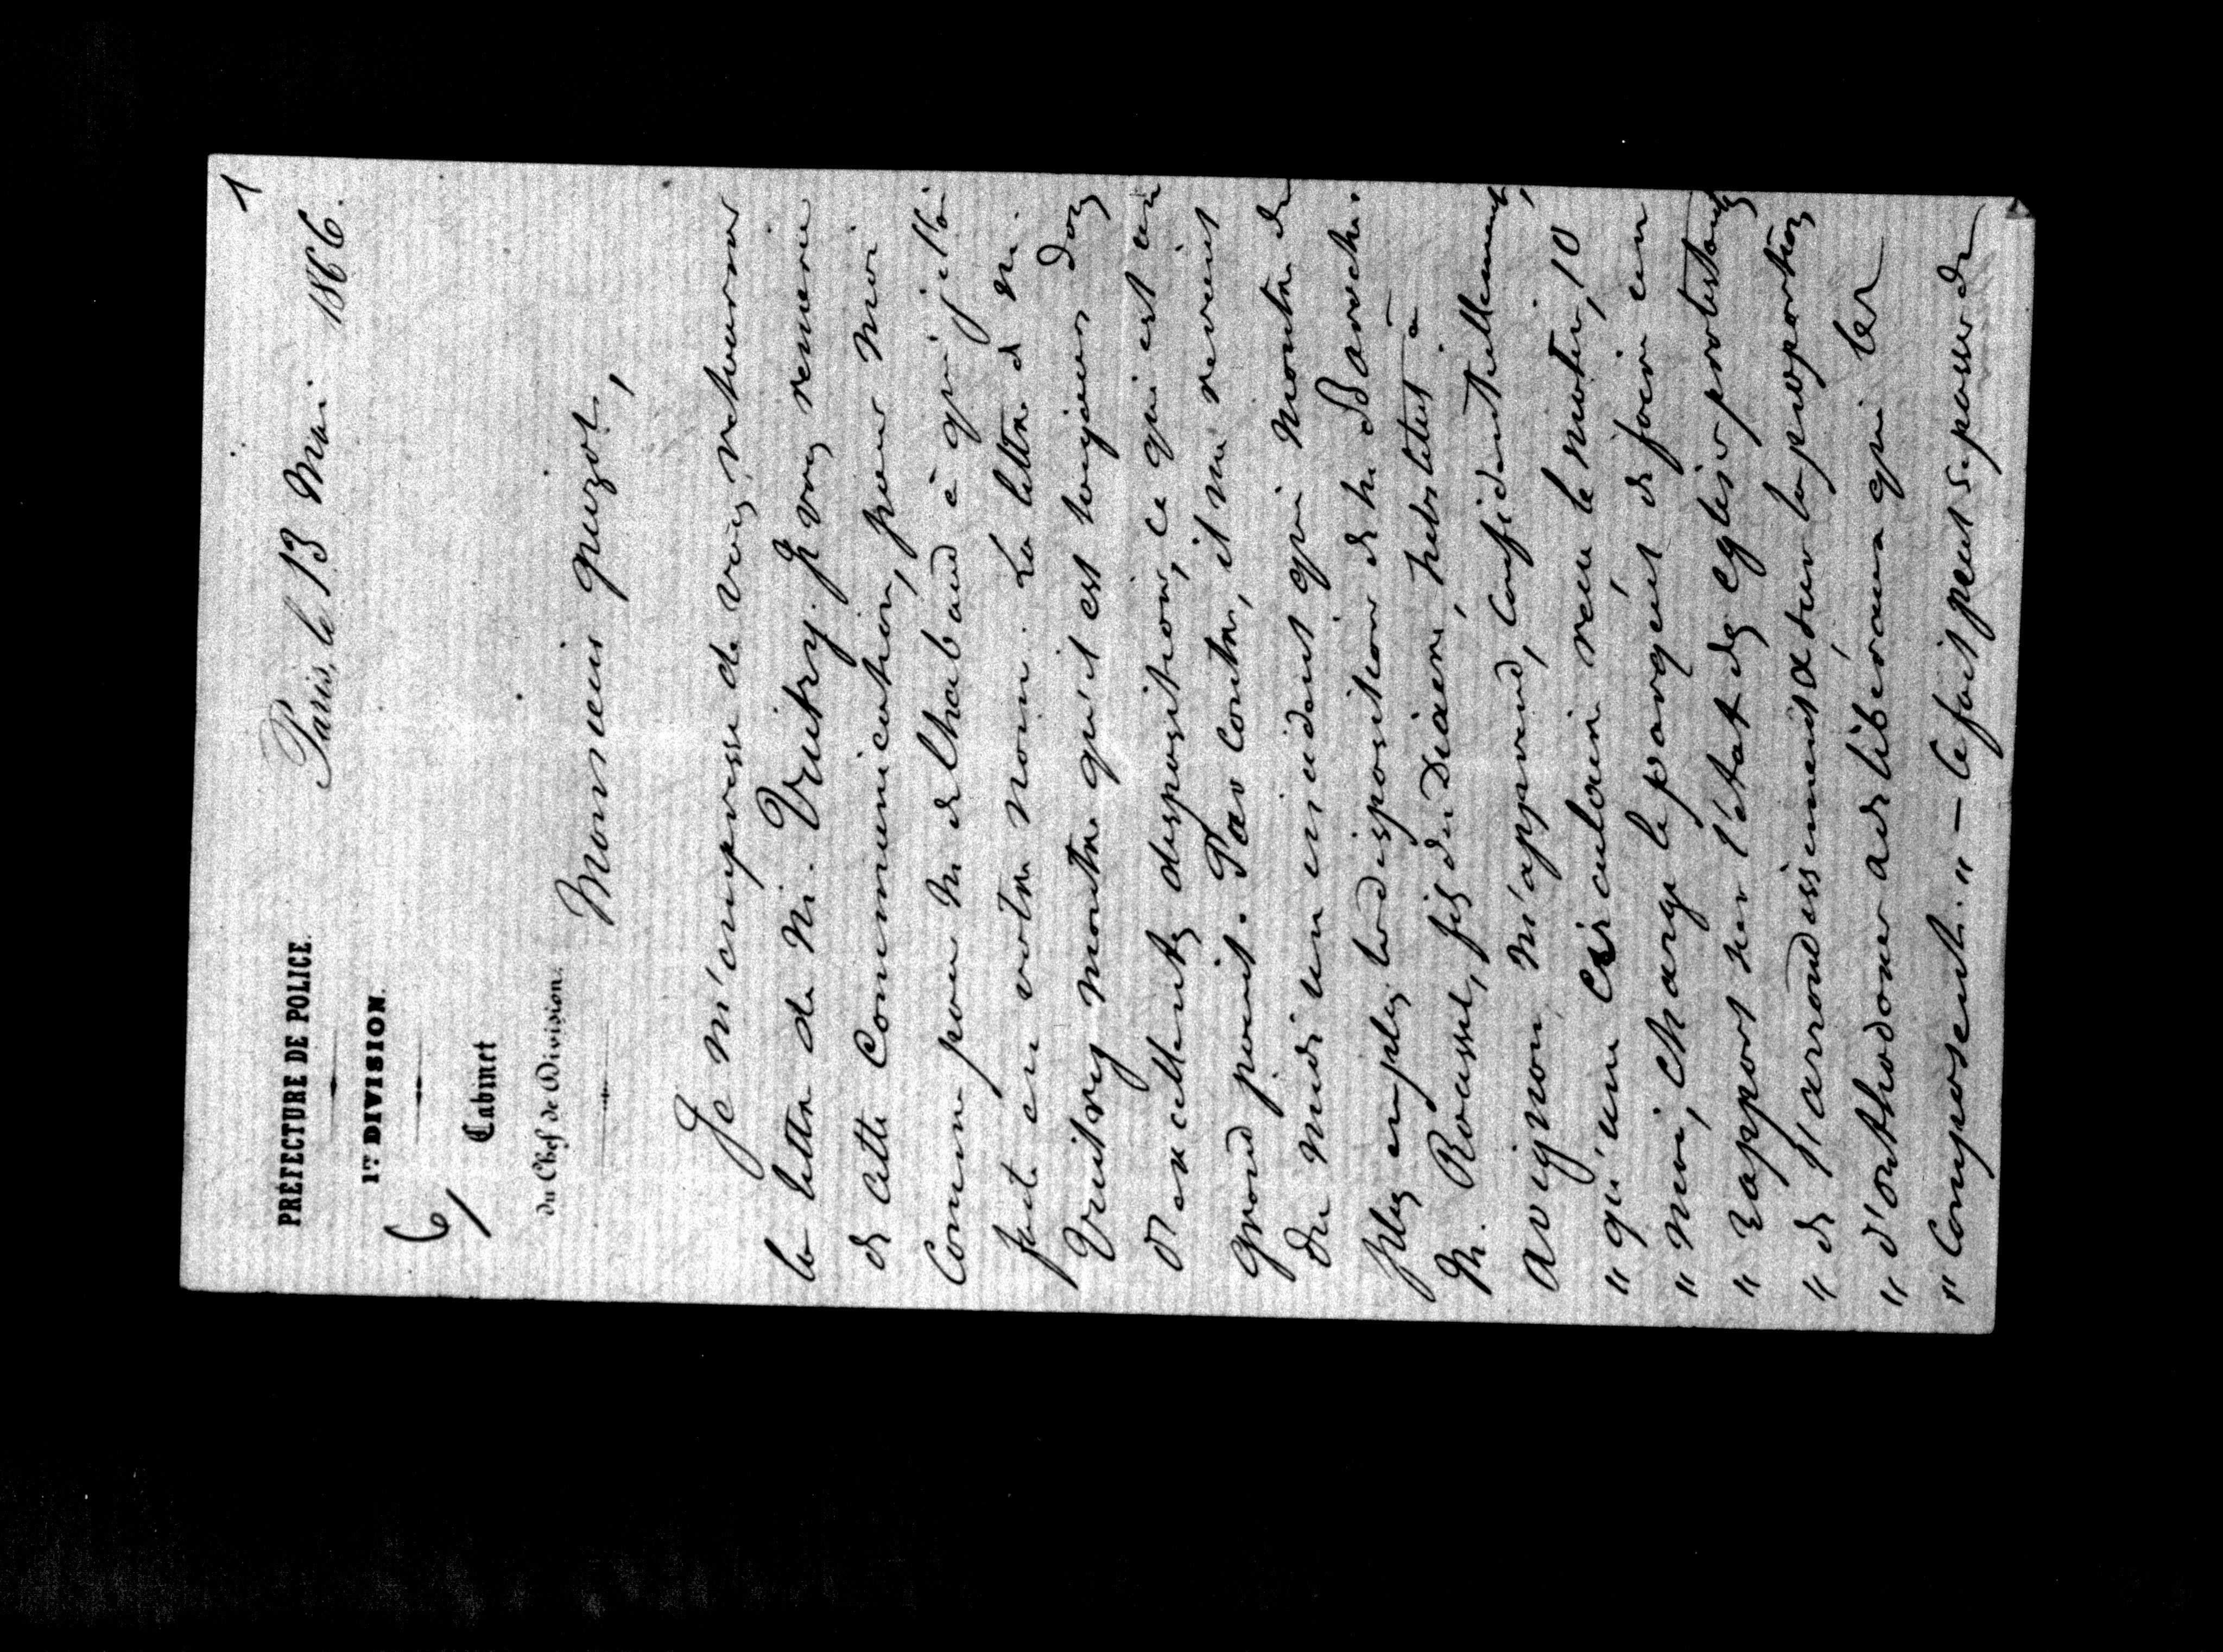 1
PRÉFECTURE DE POLICE.
1re DIVISION.
6/
Cabinet
du Chef de Division.
Paris, le 13 Mai 1866.
Monsieur Guizot,
Je m'empresse de vous retourner
la lettre de M. Vuitry. Je vous remercie
de cette communication, pour moi
comme pour M. de Chabaud à qui je l'ai
faite en votre nom. La lettre de M.
Vuitry montre qu'il est toujours dans
d'excellentes dispositions, ce qui est un
grand point. Par contre, il me revient
du midi un incident qui montre de
plus en plus les dispositions de M. Baroche.
M. Rousset, fils du Doyen, substitut à
Avignon, m'apprend, confidentiellement,
" qu'une circulaire reçue le matin, 10
" Mai, charge le parquet de faire un
" rapport sur l'état des Eglises protestantes
" de l'arrondissement & sur la proportion
" d'orthodoxes et de libéraux qui les
" composent. " — Ce fait peut se passer de